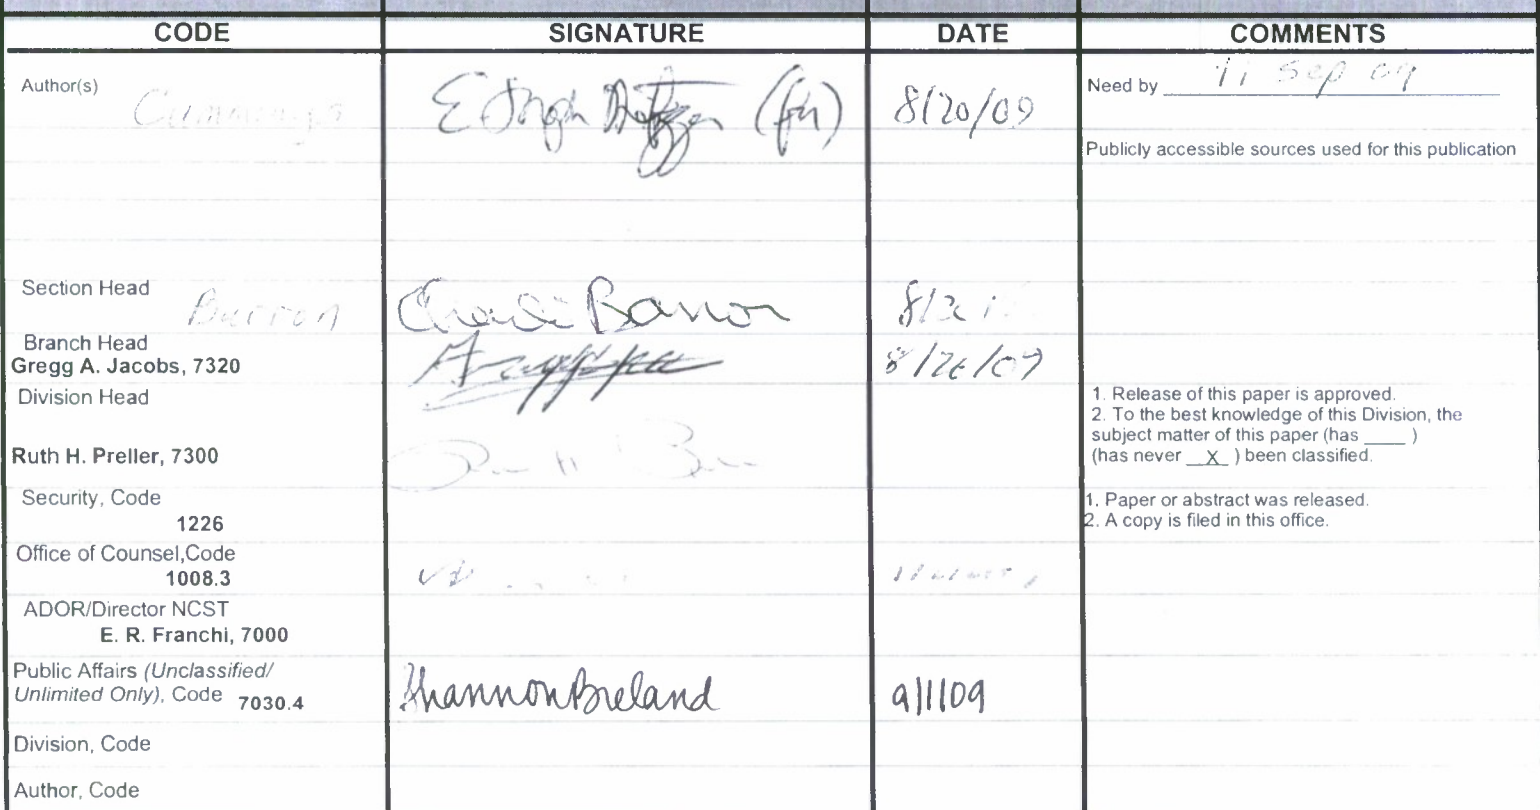 CODE SIGNATURE DATE COMMENTS
Author(s) Cummings (for) 8/20/09 Need by 11 Sep 09
Publicly accessible sources used for this publication
Section Head Barron Charlie Barron
Branch Head
Gregg A. Jacobs, 7320 8/26/09
Division Head
1. Release of this paper is approved.
2. To the best knowledge of this Division, the
subject matter of this paper (has ____ )
(has never __X__ ) been classified.
Ruth H. Preller, 7300
Security, Code
1226
1. Paper or abstract was released.
2. A copy is filed in this office.
Office of Counsel,Code
1008.3
ADOR/Director NCST
E. R. Franchi, 7000
Public Affairs (Unclassified/
Unlimited Only), Code 7030.4 Shannon Breland 9/1/09
Division, Code
Author, Code